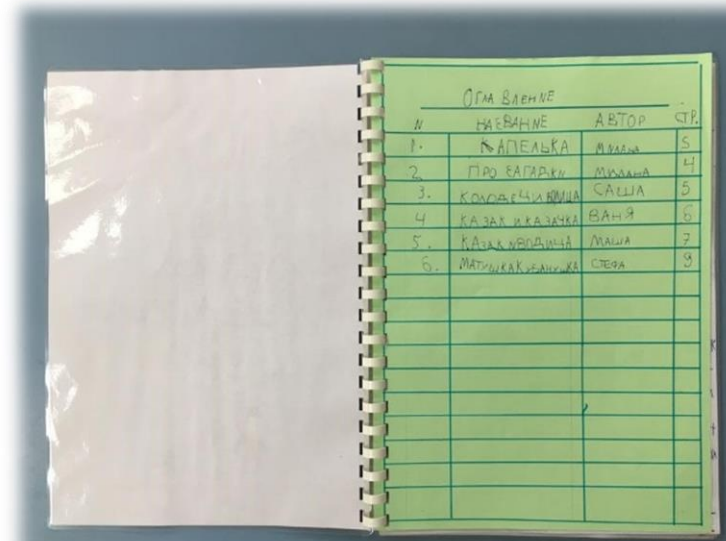 ОГЛАВЛЕНИЕ
N НАЗВАНИЕ АВТОР СТР.
1. КАПЕЛЬКА МИЛАНА 5
2 ПРО МИЛАНА 4
3. КОЛОДЕЦ И САША 5
4 КАЗАК И КАЗАЧКА ВАНЯ 6
5. КАЗАК И ВОДИЦА МАША 7
6. МАТУШКА КУБАНУШКА СТЕФА 9